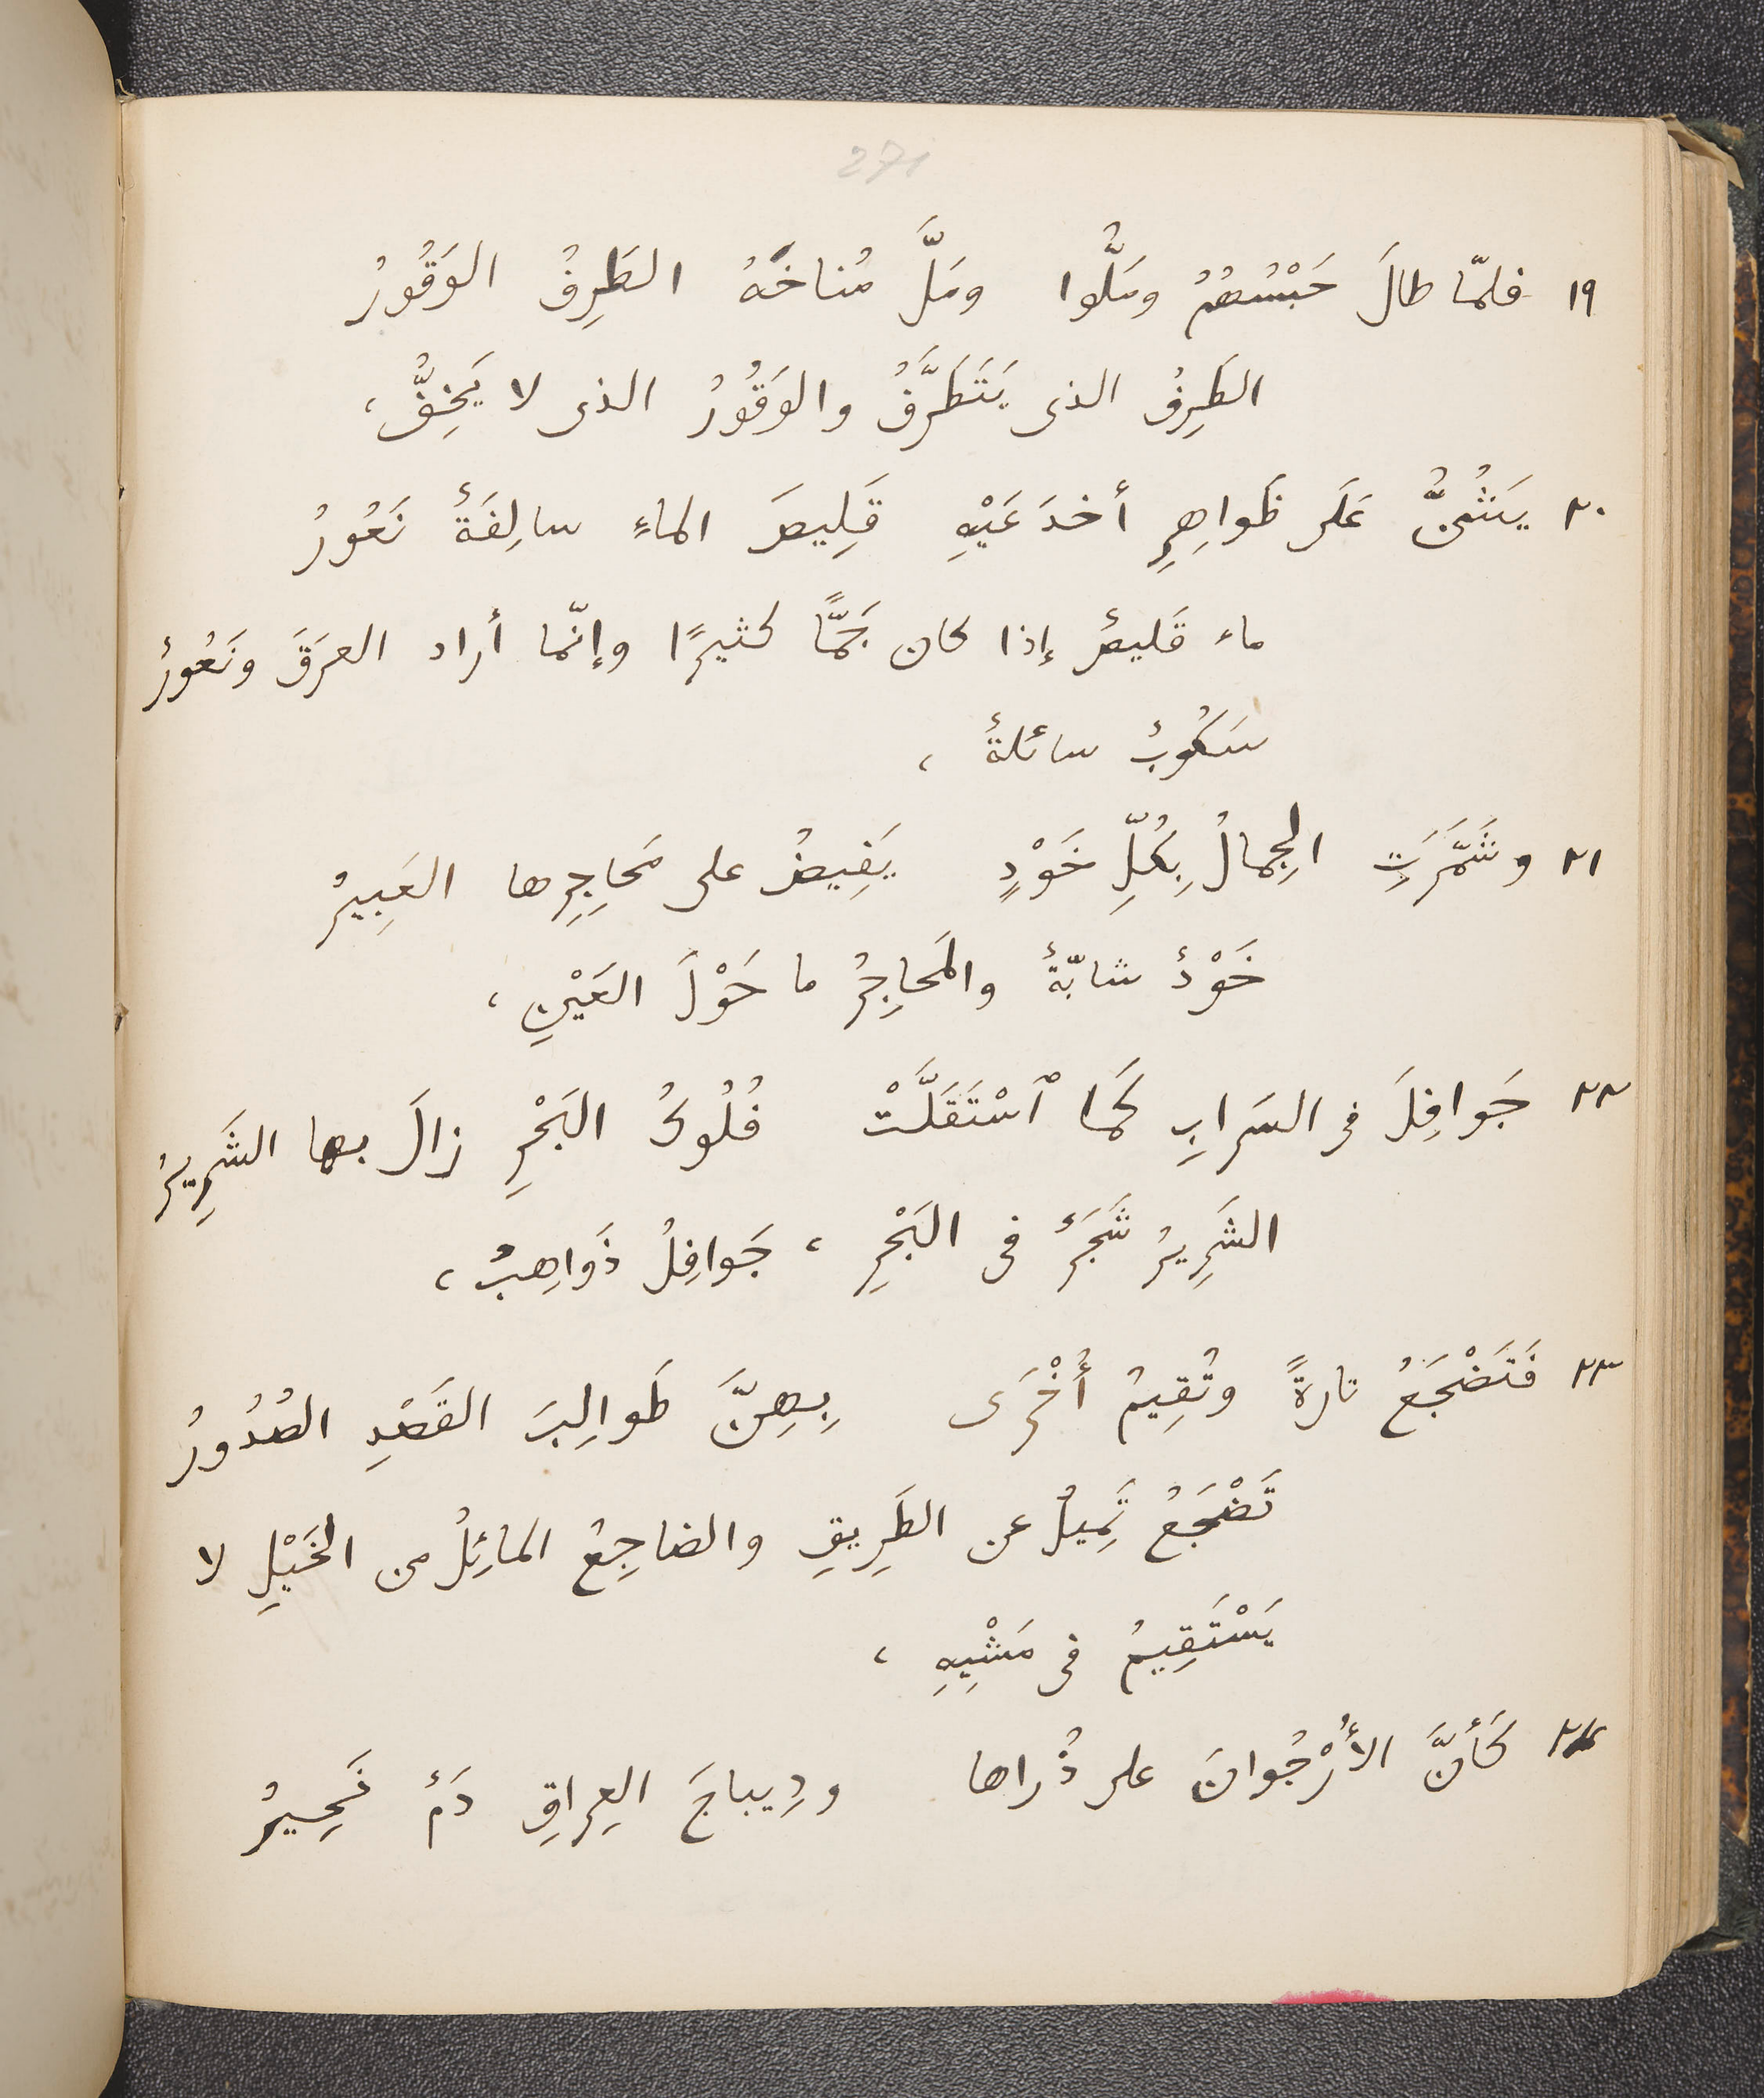 271
١٩ فلمّا طالَ حَبْسُهُمُ ومَلُّوا ومَلَّ مُناخَهُ الطَرِفُ الوَقُورُ
الطَرِفُ الذى يَتَطَرَّفُ والوَقُورُ الذى لا يَخِفُّ،
٢٠ يَشُنُّ عَلَى ظَواهِرِ أخدَعَيْهِ قَلِيصَ الماءِ سالِفَةٌ نَعُورُ
ماء قَليصٌ إذا كان جَمًّا كثيرًا وإنّما أراد العرَقَ ونَعُورٌ
سَكُوبٌ سائلةٌ ،
٢١ وشَمَّرَتِ الجِمالُ بِكُلِّ خَوْدٍ يَفِيضُ على مَحاجِرِها العَبِيرُ
خَوْدٌ شابّةٌ والمَحاجِرُ ما حَوْلَ العَيْنِ ،
٢٢ جَوافِلَ فى السَرابِ كَمَا ٱسْتَقَلَّتْ فُلُوكُ البَحْرِ زالَ بها الشَرِيرُ
الشَرِيرُ شَجَرٌ فى البَحْرِ ، جَوافِلُ ذَواهِبُ ،
٢٣ فَتَضْجَعُ تارةً وتُقِيمُ أُخْرَى بِهِنَّ طَوالِبَ القَصْدِ الصُدُورُ
تَضْجَعُ تَمِيلُ عن الطَرِيقِ والضاجِعُ المائِلُ من الخَيْلِ لا
يَسْتَقِيمُ فى مَشْيِهِ ،
٢٤ كَأنَّ الأُرْجُوانَ على ذُراها ودِيباجَ العِراقِ دَمٌ نَحِيرُ